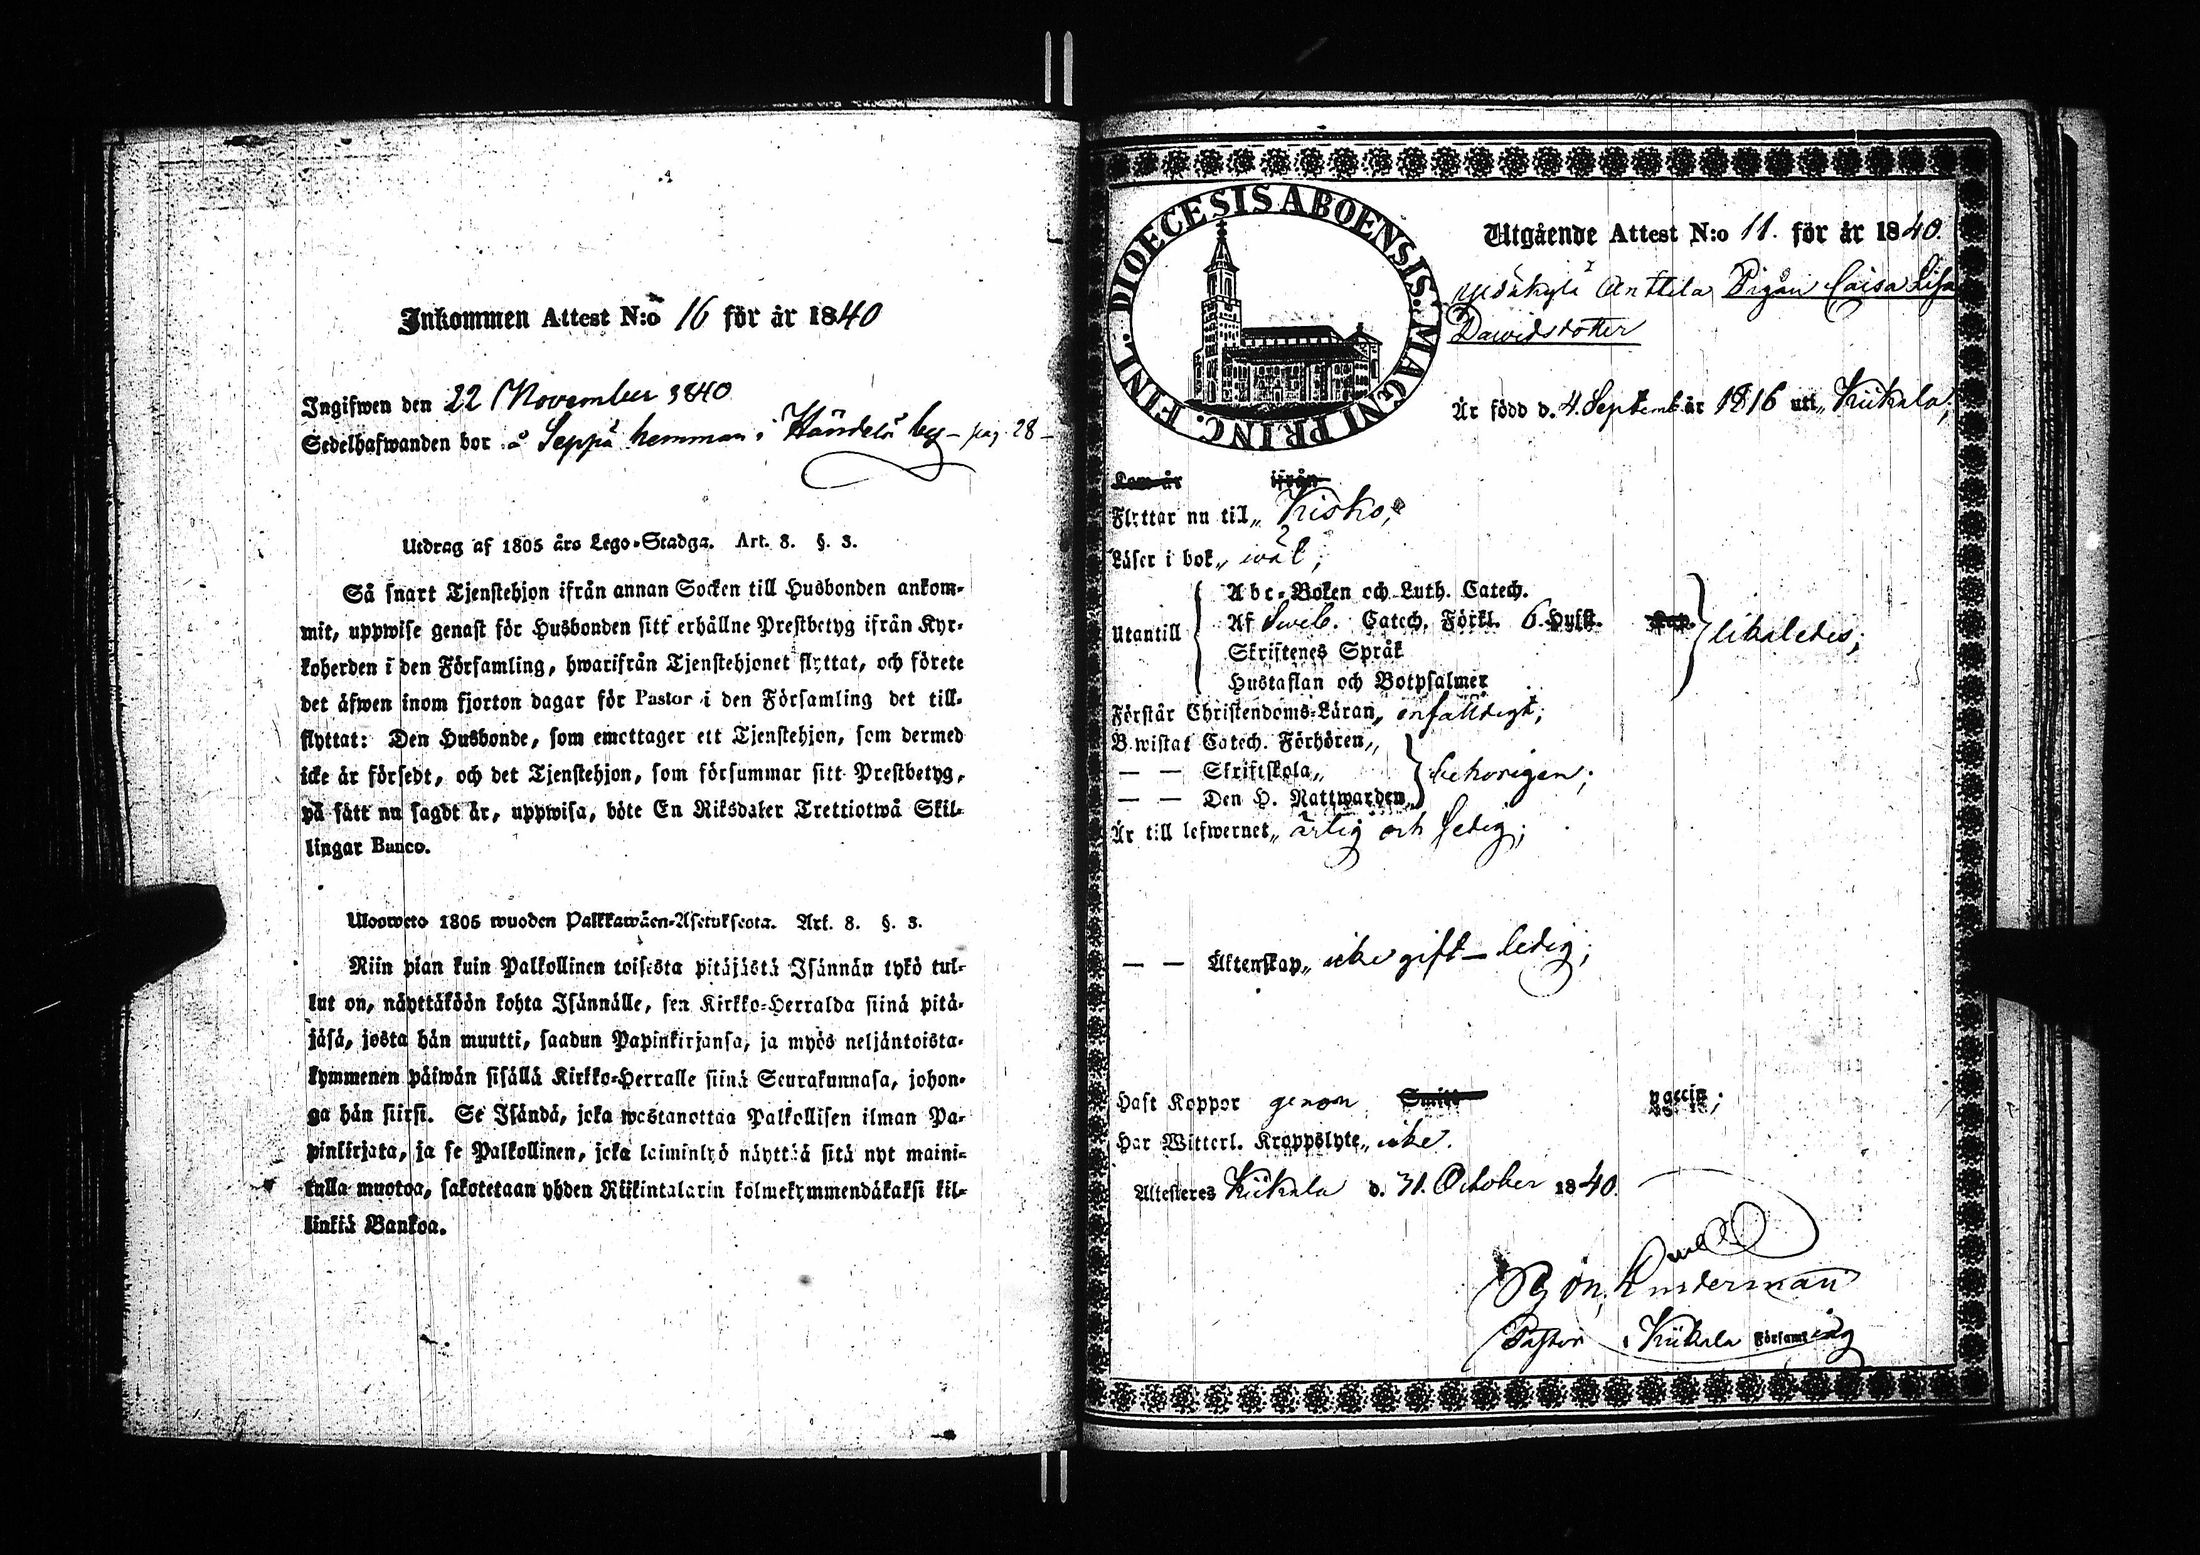 Inkommen Attest N:o 16 för år 1840
Ingifwen den 22 November 1840
Sedelhafwanden bor å Seppä hemman i Händelö by – pag. 28 –
Utdrag af 1805 års Lego-Stadga. Art. 8. §. 3.
Så snart Tjenstehjon ifrån annan Socken till Husbonden ankom-
mit, uppwise genast för Husbonden sitt erhållne Prestbetyg ifrån Kyr-
koherden i den Församling, hwarifrån Tjenstehjonet flyttat, och förete
det äfwen inom fjorton dagar för Pastor i den Församling det till-
flyttat: Den Husbonde, som emottager ett Tjenstehjon, som dermed
icke är försedt, och det Tjenstehjon, som försummar sitt Prestbetyg,
på sätt nu sagdt är, uppwisa, böte En Riksdaler Trettiotwå Skil-
lingar Banco.
Ulosweto 1805 wuoden Palkkawäen-Asetuksesta. Art. 8. §. 3.
Niin pian kuin Palkollinen toisesta pitäjästä Isännän tykö tul-
lut on, näyttäköön kohta Isännälle, sen Kirkko-Herralda siinä pitä-
jäsä, josta hän muutti, saadun Papinkirjansa, ja myös neljäntoista-
kymmenen päiwän sisällä Kirkko-Herralle siinä Seurakunnasa, johon-
ga hän siirsi. Se Isändä, joka wastanottaa Palkollisen ilman Pa-
pinkirjata, ja se Palkollinen, joka laiminlyö näyttää sitä nyt maini-
tulla muotoa, sakotetaan yhden Riikintalarin kolmekymmendäkaksi kil-
linkiä Bankoa.
DIOECESIS ABOENSIS. MAGNI PRINC. FINL.
Utgående Attest N:o 11. för år 1840.
Anttila Pigan Caisa Lisa
Dawidsdotter
Är född d. 4. Septemb. år 1816 uti „ Kiikala;
Kom år ifrån
Flyttar nu til „ Kisko;
Läser i bok „ wäl;
Utantill
Abc-Boken och Luth. Catech.
Af Sweb. Catech. Förkl. 6. Hufst. Kap.
Skriftenes Språk
Hustaflan och Botpsalmer
likaledes;
Förstår Christendoms-Läran „ enfaldigt;
Bewistat Catech. Förhören „
— — Skriftskola „
— — Den H. Nattwarden „
behörigen;
Är till lefwernet „ ärlig och ledig;
— — Äktenskap „ icke gift – ledig;
Haft Koppor genom Smitt vaccin;
Har Witterl. Kroppslyte „ icke.
Attesteres Kiikala d. 31. October 1840.
Pastor i Kiikala Församling